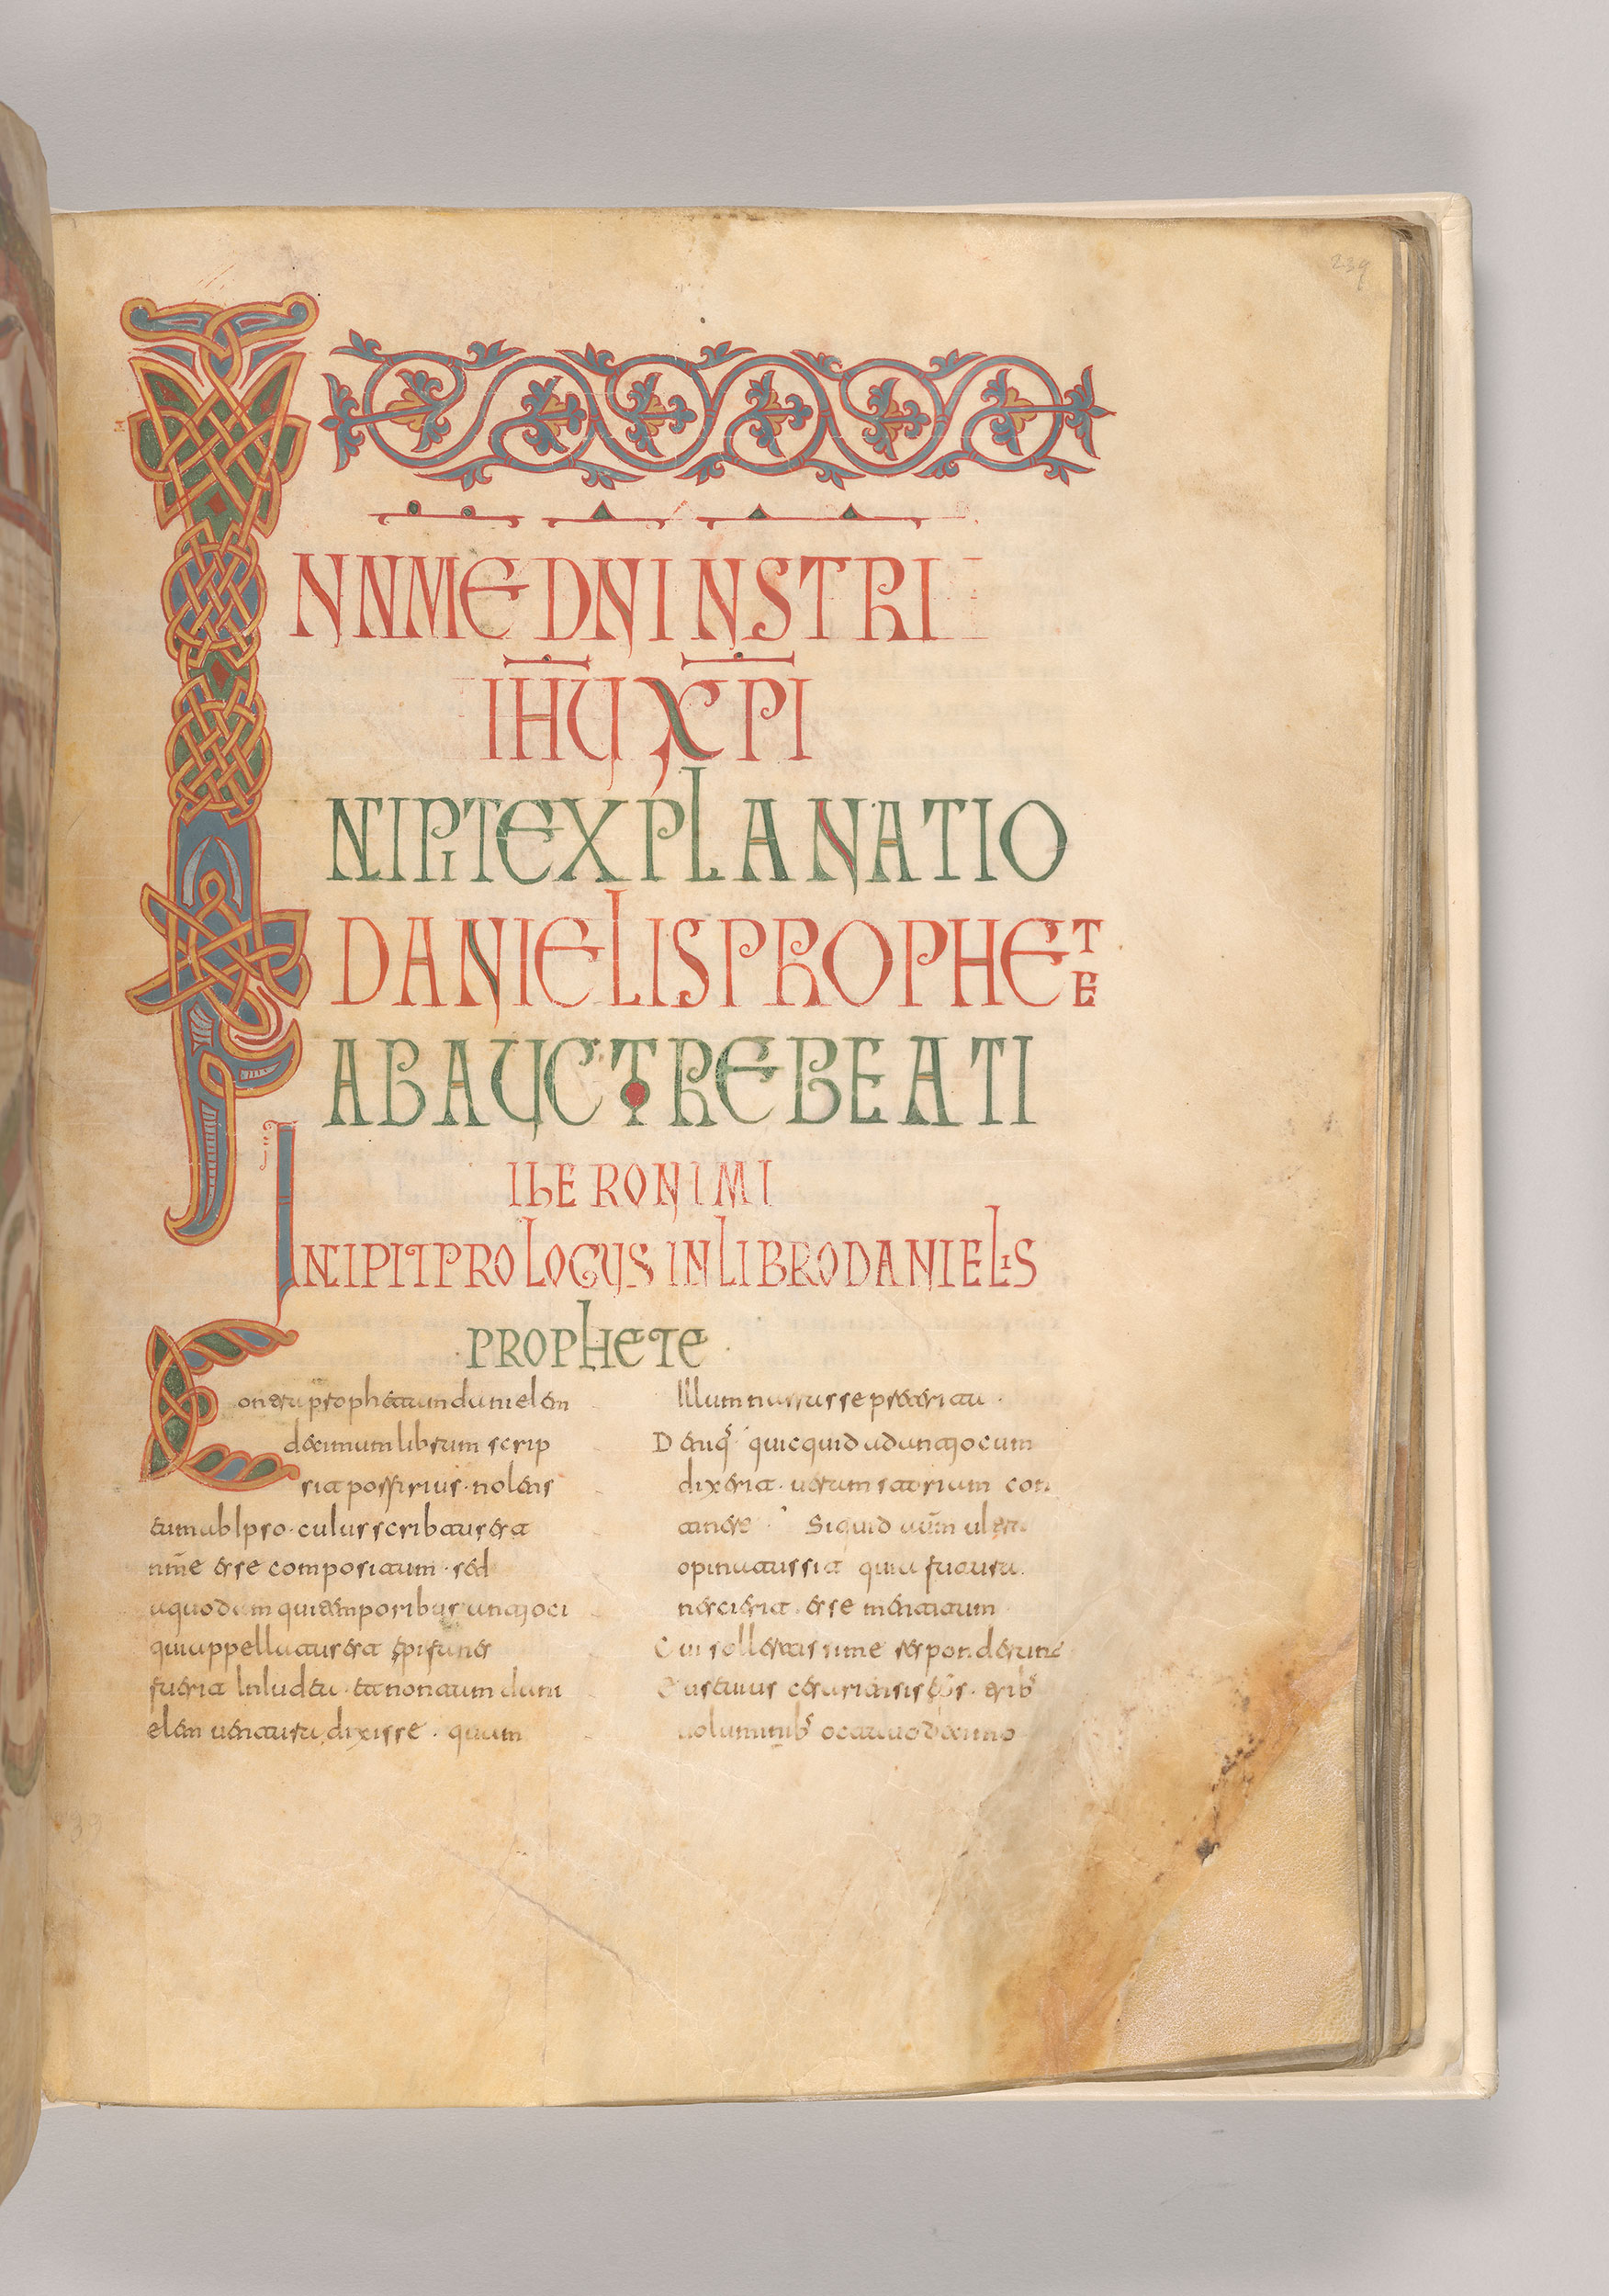 239
IN NME DNI NSTRI
IHU XPI
NIPIT EXPLANATIO
DANIELIS PROPHETE
AB AUCTRE BEATI
IHERONIMI
INCIPIT PROLOGUS IN LIBRO DANIELIS
PROPHETE
Contra prophetam danielem
decimum librum scrip
sit porfirius · nolens
eum ab ipso · cuius scribtus est
nme esse compositum · sed
a quodam qui temporibus antioci
qui appellatus est epifanes
fuerit In Iudea · et non tam dani
elem uentura dixisse · quam
Illum narrasse preterita ·
Denq quicquid ad antiocum
dixerit · ueram storiam con
tinere · Si quid aum ultra
opinatus sit quia futura
nescierit · esse mentitum
Cui sollertissime responderunt
Eusebius cesariensis eps · trib
uoluminib octabo decimo